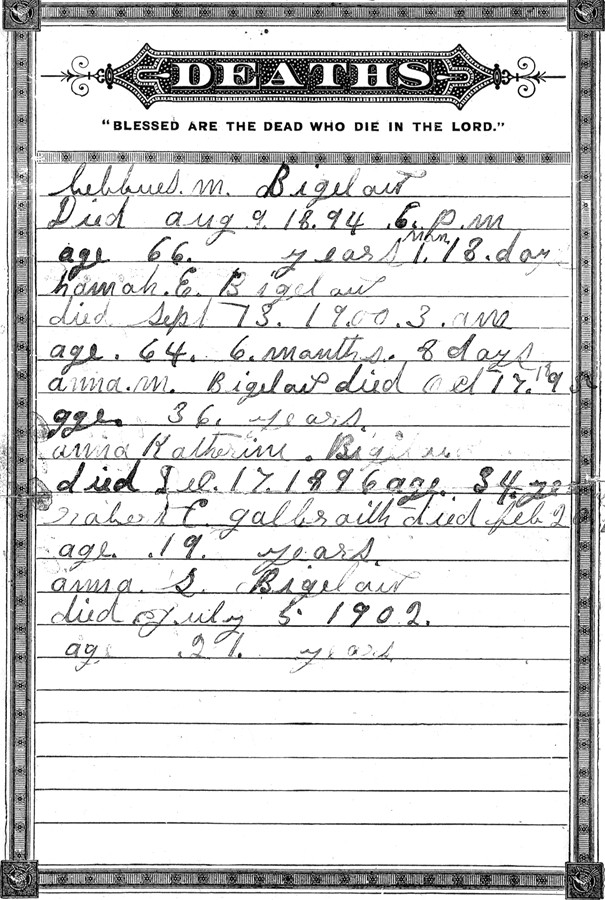 DEATHS
"BLESSED ARE THE DEAD WHO DIE IN THE LORD."
M. Bigelow
Died aug 9. 18.94 .6. p.m
age 66. years 1. mon 18. day
hannah. E. Bigelow
died Sept 13. 19.00. 3. am
age. 64. 6. months. 8 days
anna. m. Bigelow died Oct 17.
age. 36. years.
anna Katherine. Bigelow
died Dec. 17. 1896 age. 34.
Robert C. galbraith died feb 2
age. .19. years.
anna. S. Bigelow
died July 5 1902.
age .21. years